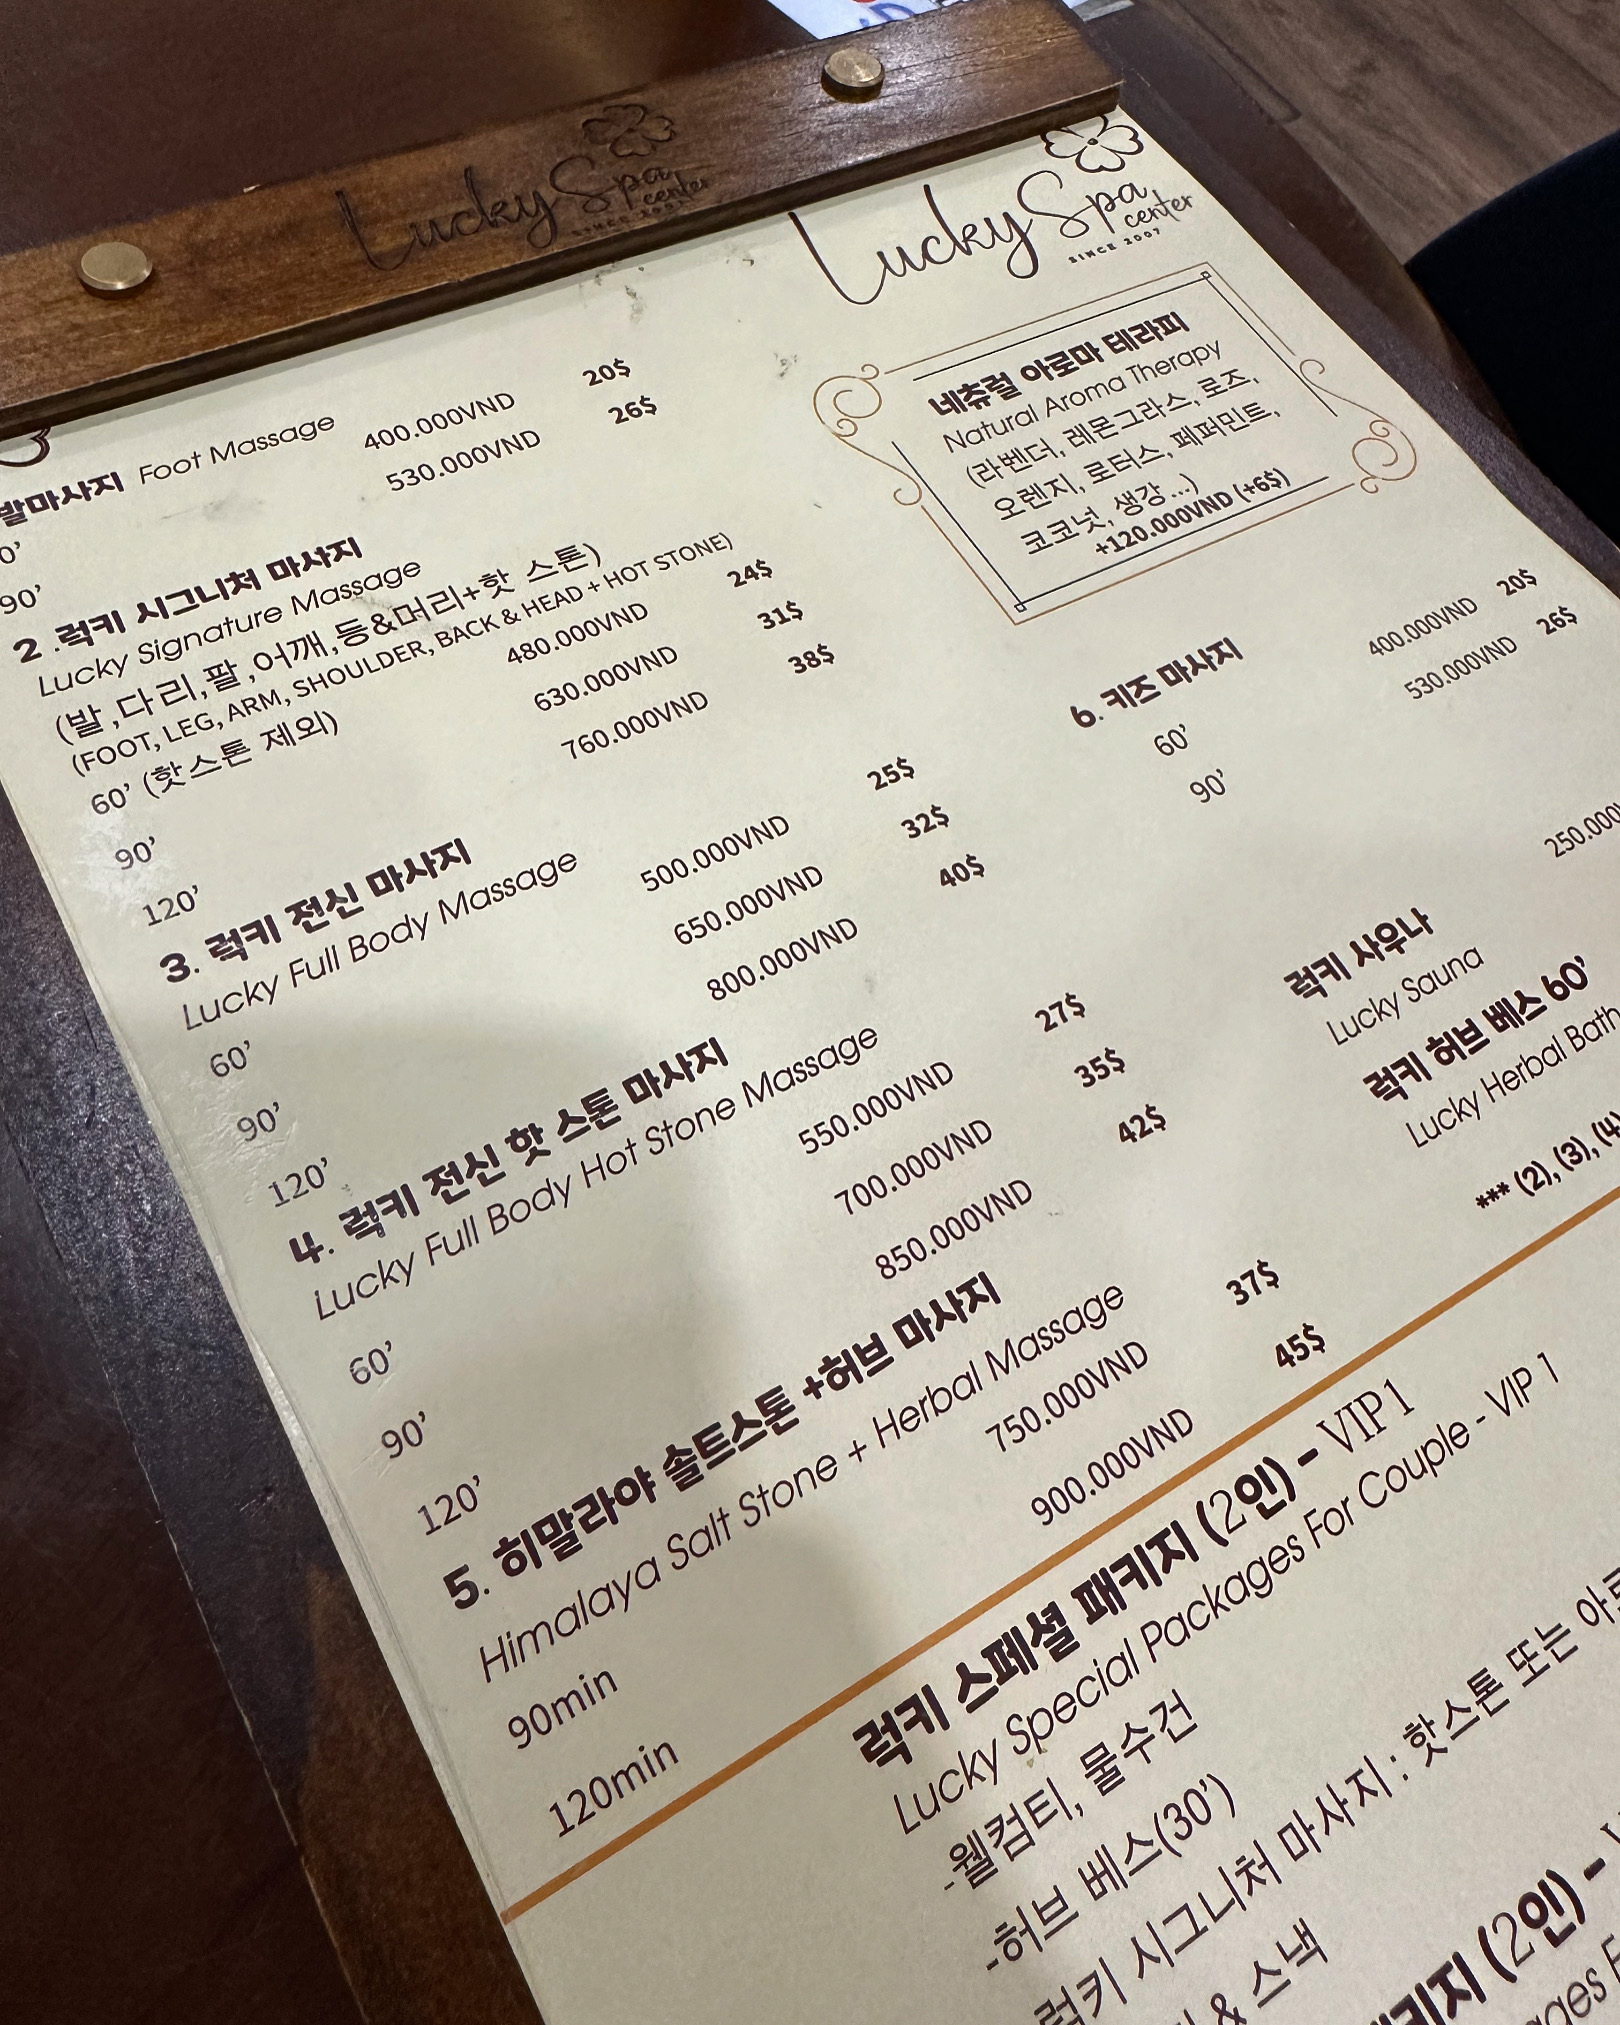 Lucky Spa
center
SINCE 2007
Lucky Spa
center
SINCE 2007
발마사지 Foot Massage
0' 400.000VND 20$
90' 530.000VND 26$
2 .럭키 시그니처 마사지
Lucky Signature Massage
(발,다리,팔,어깨,등&머리+핫 스톤)
(FOOT, LEG, ARM, SHOULDER, BACK & HEAD + HOT STONE)
60' (핫스톤 제외) 480.000VND 24$
90' 630.000VND 31$
120' 760.000VND 38$
3. 럭키 전신 마사지
Lucky Full Body Massage
60' 500.000VND 25$
90' 650.000VND 32$
120' 800.000VND 40$
4. 럭키 전신 핫 스톤 마사지
Lucky Full Body Hot Stone Massage
60' 550.000VND 27$
90' 700.000VND 35$
120' 850.000VND 42$
5. 히말라야 솔트스톤 +허브 마사지
Himalaya Salt Stone + Herbal Massage
90min 750.000VND 37$
120min 900.000VND 45$
네츄럴 아로마 테라피
Natural Aroma Therapy
(라벤더, 레몬그라스, 로즈,
오렌지, 로터스, 페퍼민트,
코코넛, 생강...)
+120.000VND (+6$)
6. 키즈 마사지
60' 400.000VND 20$
90' 530.000VND 26$
럭키 사우나 250.000
Lucky Sauna
럭키 허브 베스 60'
Lucky Herbal Bath
*** (2), (3), (4
럭키 스페셜 패키지 (2인) - VIP 1
Lucky Special Packages For Couple - VIP 1
-웰컴티, 물수건
-허브 베스(30')
럭키 시그니처 마사지 : 핫스톤 또는
& 스낵
키지 (2인) -